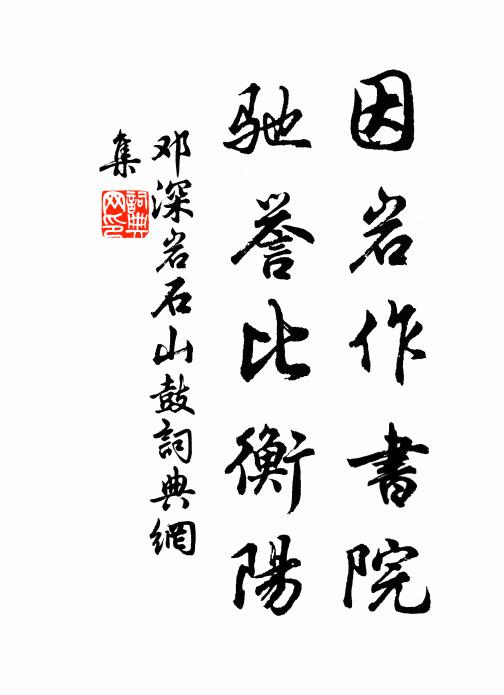 因岩作書院
馳誉比衡陽
邓深岩石山鼓詞典網
集
詞典
网印